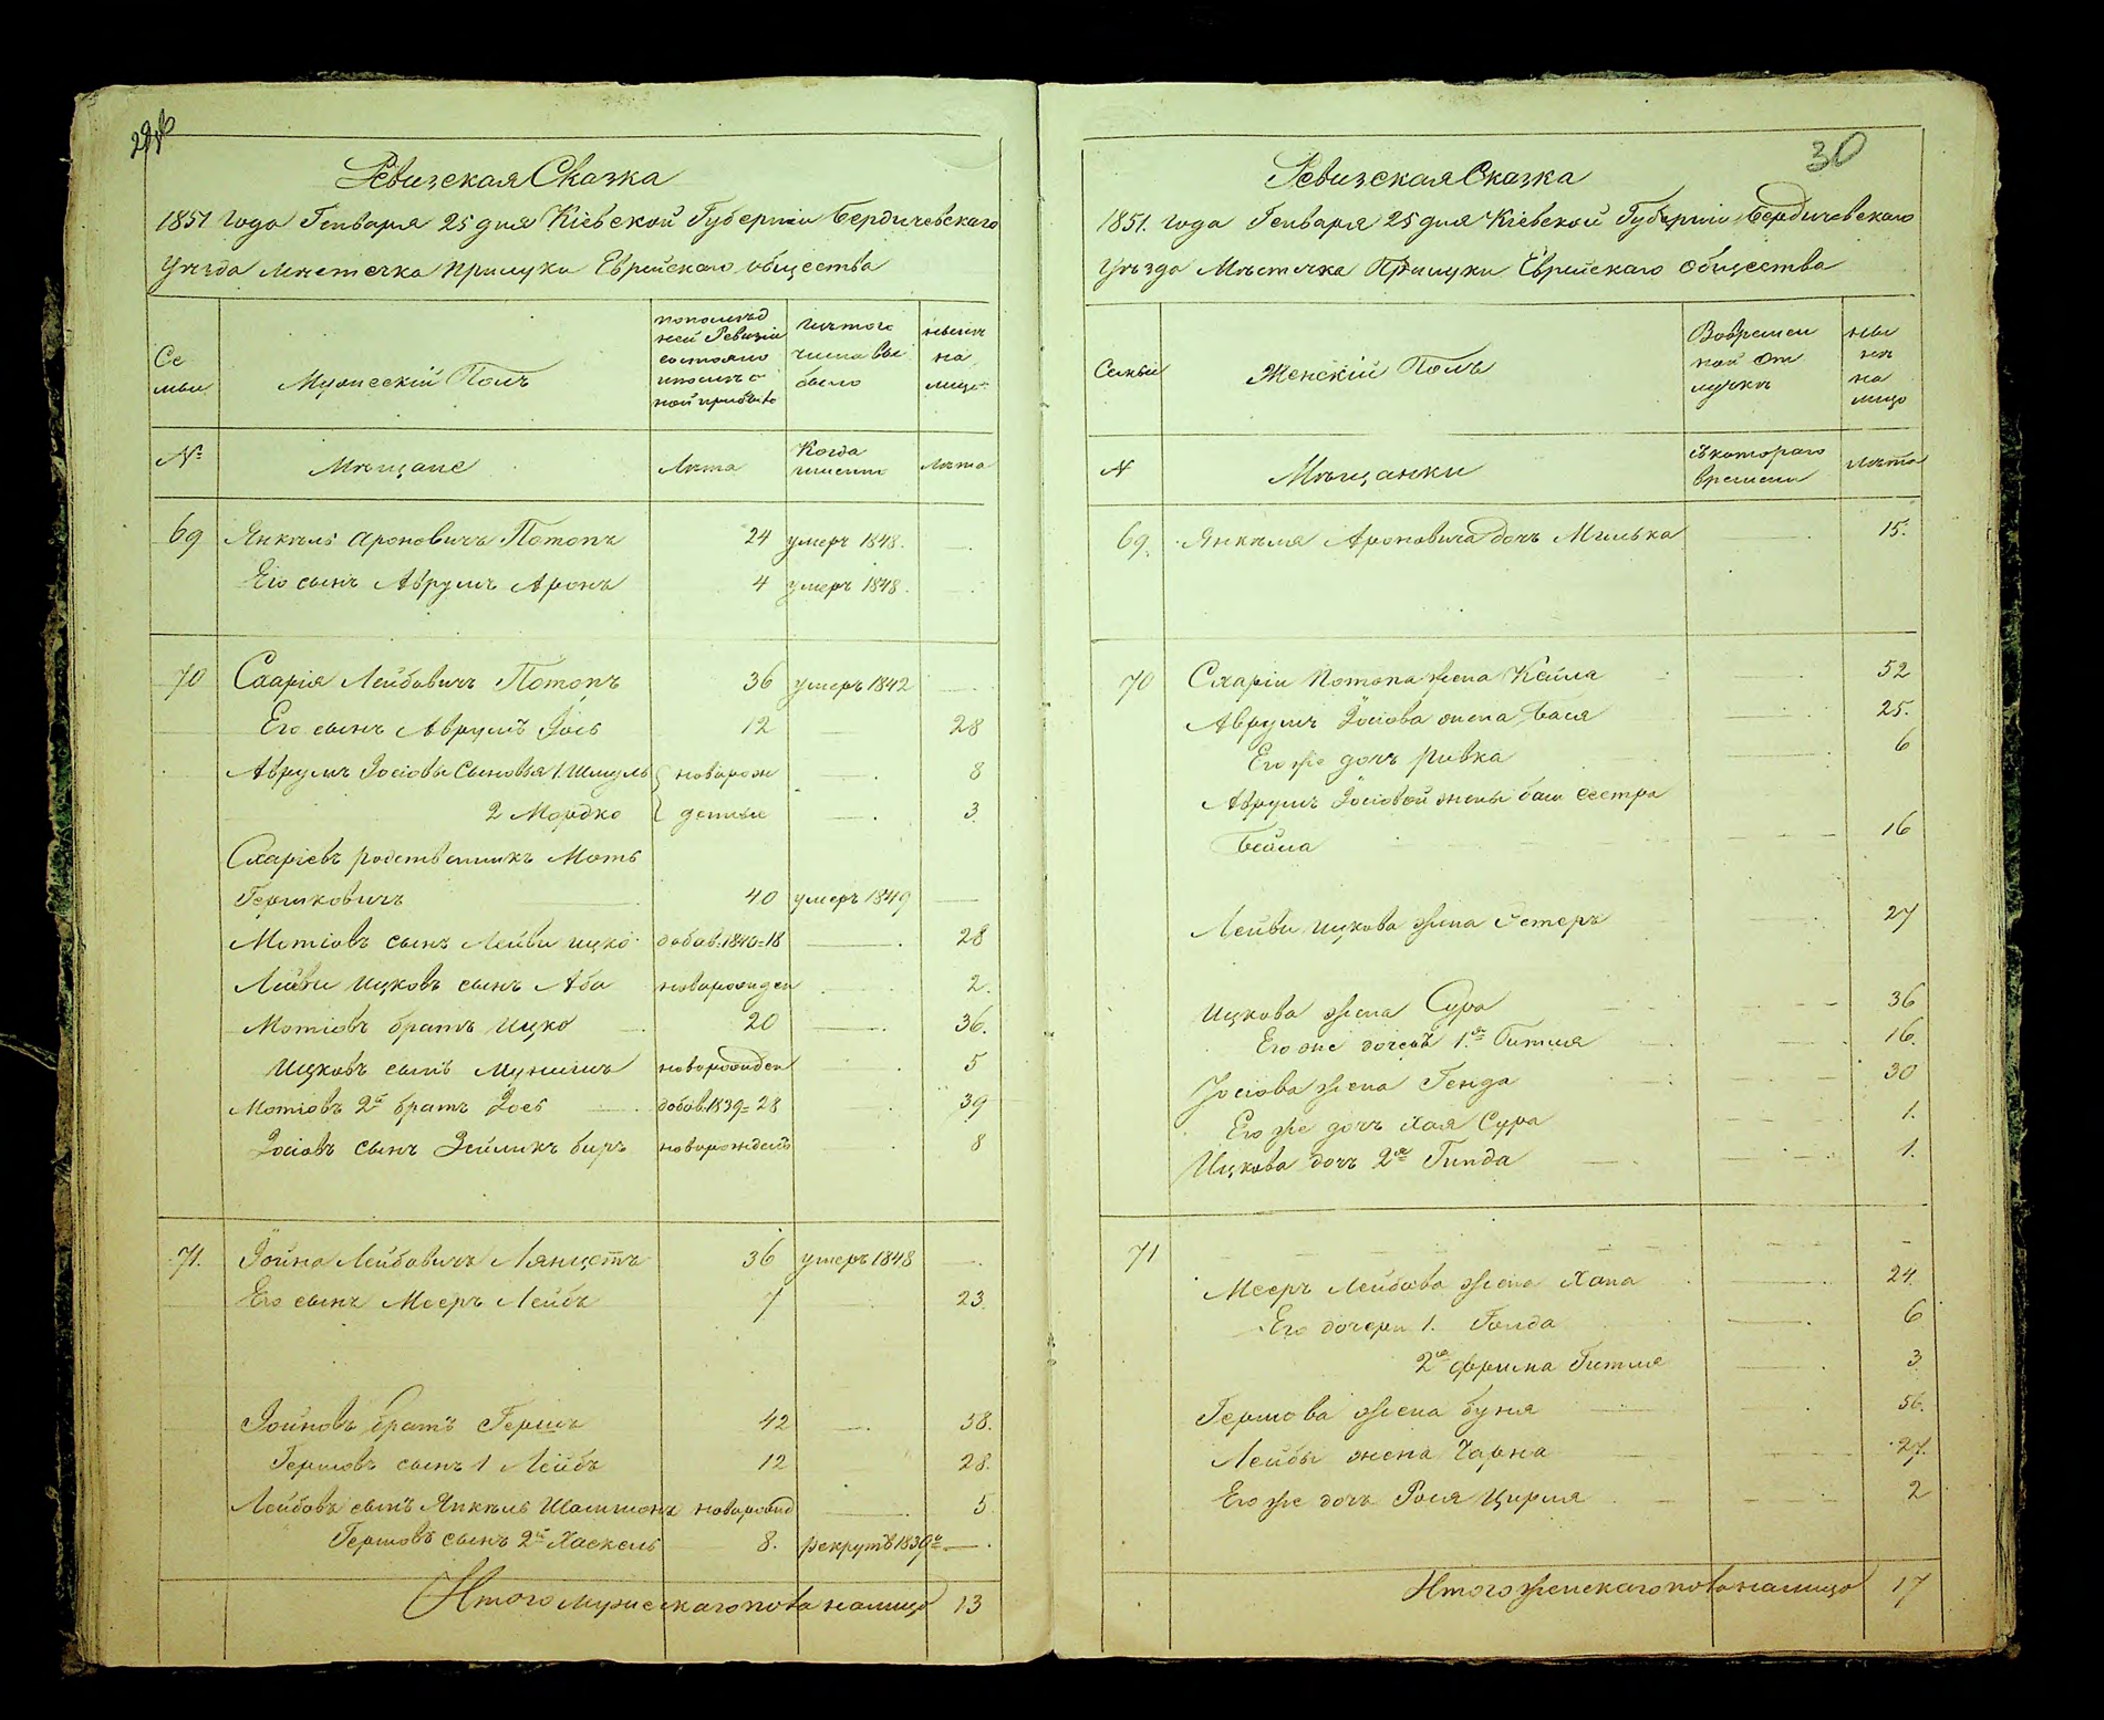 Ревизская Сказка
1851 года Генваря 25 дня Кіевской Губерніи Бердичевскаго
Уѣзда Мѣстечка Прилуки Еврейскаго общества
Се
мьи
Мужескій Полъ
попослѣд
ней Ревизіи
состояло
и послѣ о
ной прибыло
Изъ того
числа вы
было
нынѣ
на
лицо
№
Мѣщане
Лѣта
Когда
именно
Лѣта
69 Янкель Ароновичъ Потопъ 24 умеръ 1848. —
Его сынъ Аврумъ Аронъ 4 умеръ 1848. —
70 Схарія Лейбовичъ Потопъ 36 умеръ 1842 —
Его сынъ Аврумъ Іось 12 — 28
Аврумъ Іосіовы Сыновья 1. Шмуль новорож — 8
2 Мордко денные — 3
Схаріевъ родственникъ Моть
Гершковичъ 40 умеръ 1849 —
Мотіовъ сынъ Лейви ицко добав: 1840=18 — 28
Лейви Ицковъ сынъ Аба новорожден — 2.
Мотіовъ братъ Ицко 20 — 36.
Ицковъ сынъ Мунишъ новорожден — 5
Мотіовъ 2й братъ Іось добав: 1839=28 — 39
Іосіовъ сынъ Зейликъ биръ новорожден — 8
71. Іойна Лейбовичъ Лянцетъ 36 умеръ 1848 —
Его сынъ Мееръ Лейбъ 7 — 23.
Іойновъ братъ Гершъ 42 — 58.
Гершовъ сынъ 1 Лейбъ 12 28.
Лейбовъ сынъ Янкель Шлиомонъ новорожд — 5
Гершовъ сынъ 2й Хаскель 8. рекрутъ 1839го —
Итого мужескаго пола налицо 13
30
Ревизская Сказка
1851. года Генваря 25 дня Кіевской Губерніи Бердичевскаго
Уѣзда Мѣстечка Прилуки Еврейскаго Общества
Семьи
Женскій Полъ
Вовремен
ной От
лучкѣ
ны
нѣ
на
лицо
№
Мѣщанки
Съ котораго
времени
Лѣта
69. Янкеля Ароновича дочъ Милька — 15.
70 Схаріи Потопа жена Кейла — 52
Аврумъ Іосіова жена Бася — 25.
Его же дочъ Ривка — 6
Аврумъ Іосіовой жены баси сестра
Бейла — 16
Лейви Ицкова жена Эстеръ — 27
Ицкова жена Сура — 36
Его же дочерь 1я Гитля — 16.
Іосіова жена Генда — 30
Его же дочъ Хая Сура — 1.
Ицкова дочъ 2я Гинда — 1.
71 — — —
Мееръ Лейбова жена Хана — 24.
Его дочери 1. Генда — 6
2я Фрина Гитля — 3
Гершова жена Буня — 56.
Лейбы жена Чарна — 27.
Его же дочъ Рося Цирля — 2
Итого женскаго пола налицо 17